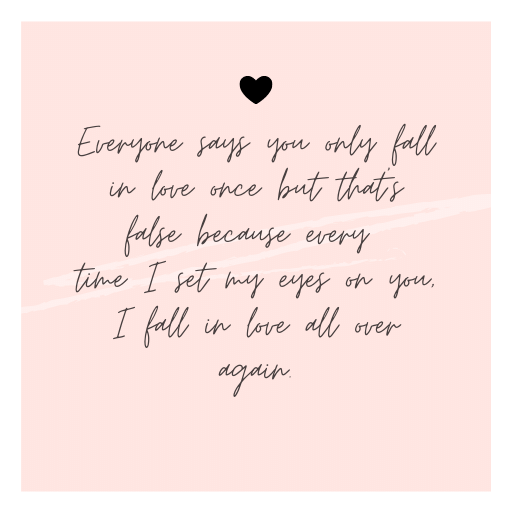 Everyone says you only fall
in love once but that's
false because every
time I set my eyes on you,
I fall in love all over
again.